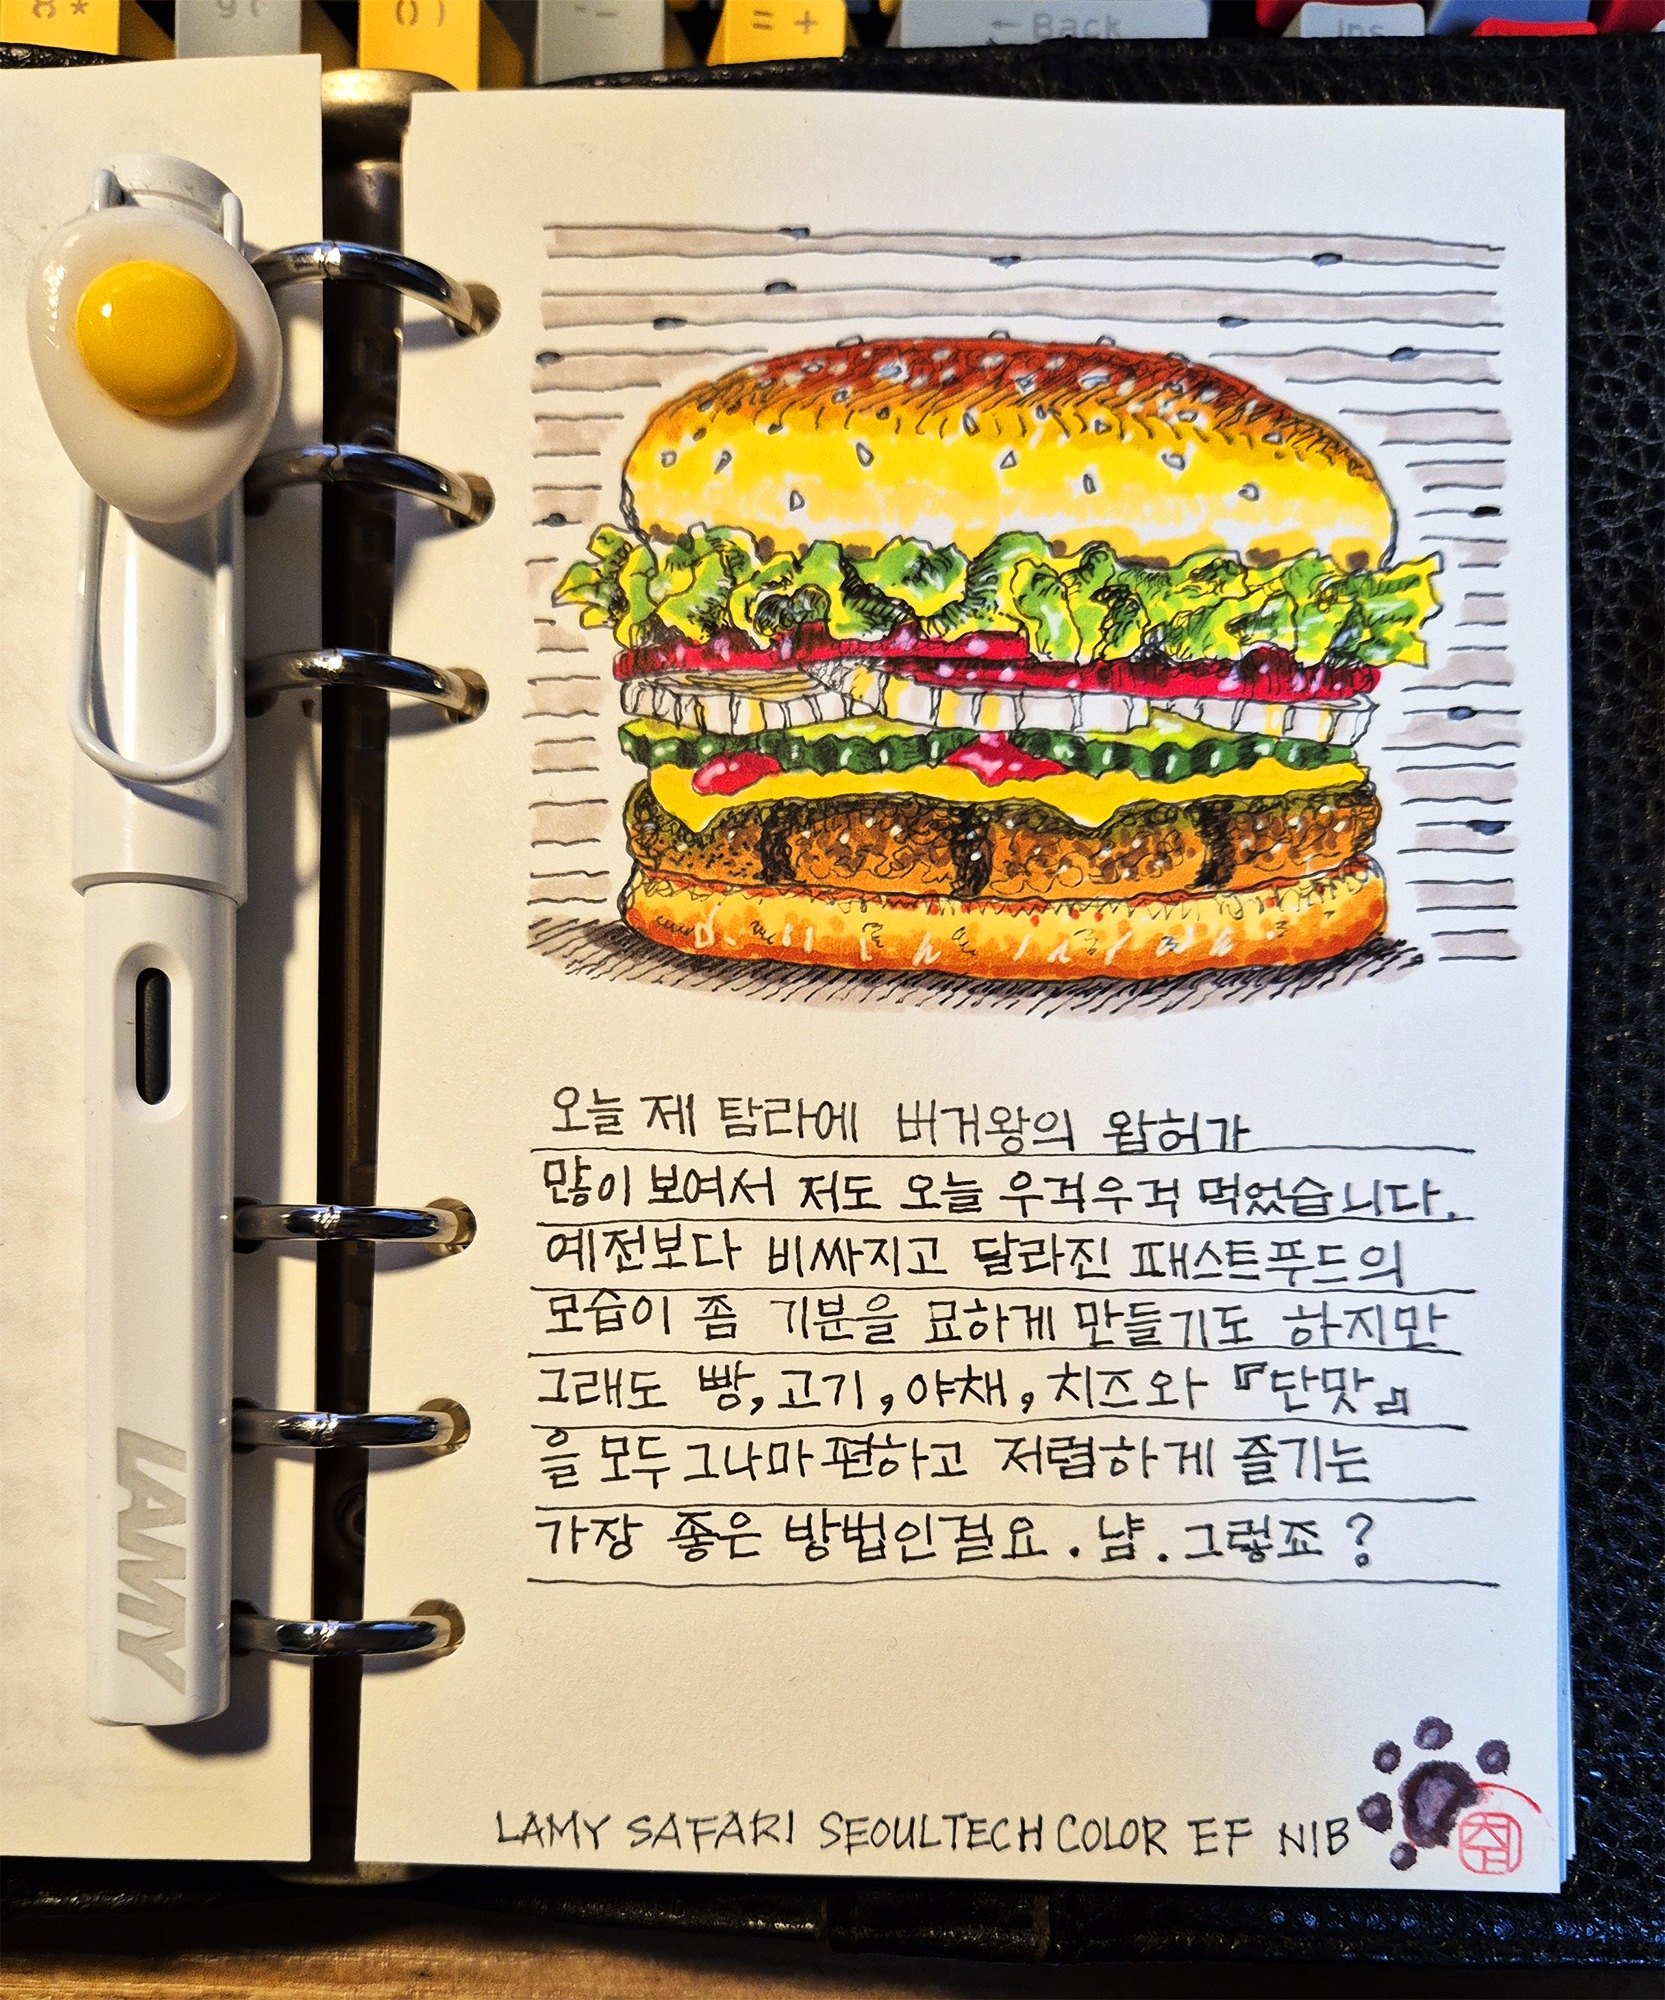 8 *
9 (
0 )
- -
= +
← Back
Ins
오늘 제 탐라에 버거왕의 왑허가
많이 보여서 저도 오늘 우걱우걱 먹었습니다.
예전보다 비싸지고 달라진 패스트푸드의
모습이 좀 기분을 묘하게 만들기도 하지만
그래도 빵, 고기, 야채, 치즈와 『단맛』
을 모두 그나마 편하고 저렴하게 즐기는
가장 좋은 방법인걸요. 냠. 그렇죠?
LAMY
LAMY SAFARI SEOULTECH COLOR EF NIB